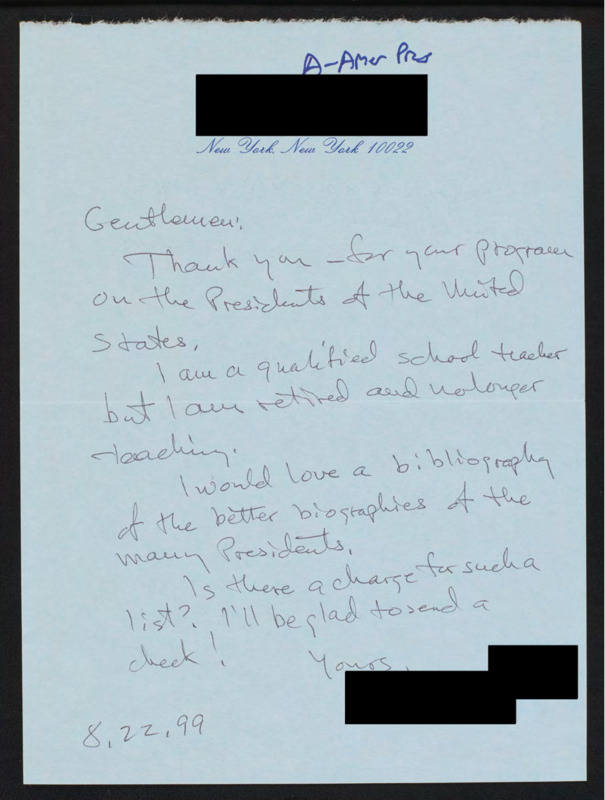 A-Amer Pres
New York, New York 10022
Gentlemen:
Thank you - for your program
on the Presidents of the United
States.
I am a qualified school teacher
but I am retired and no longer
teaching.
I would love a bibliography
of the better biographies of the
many Presidents.
Is there a charge for such a
list? I'll be glad to send a
check! Yours,
8,22,99